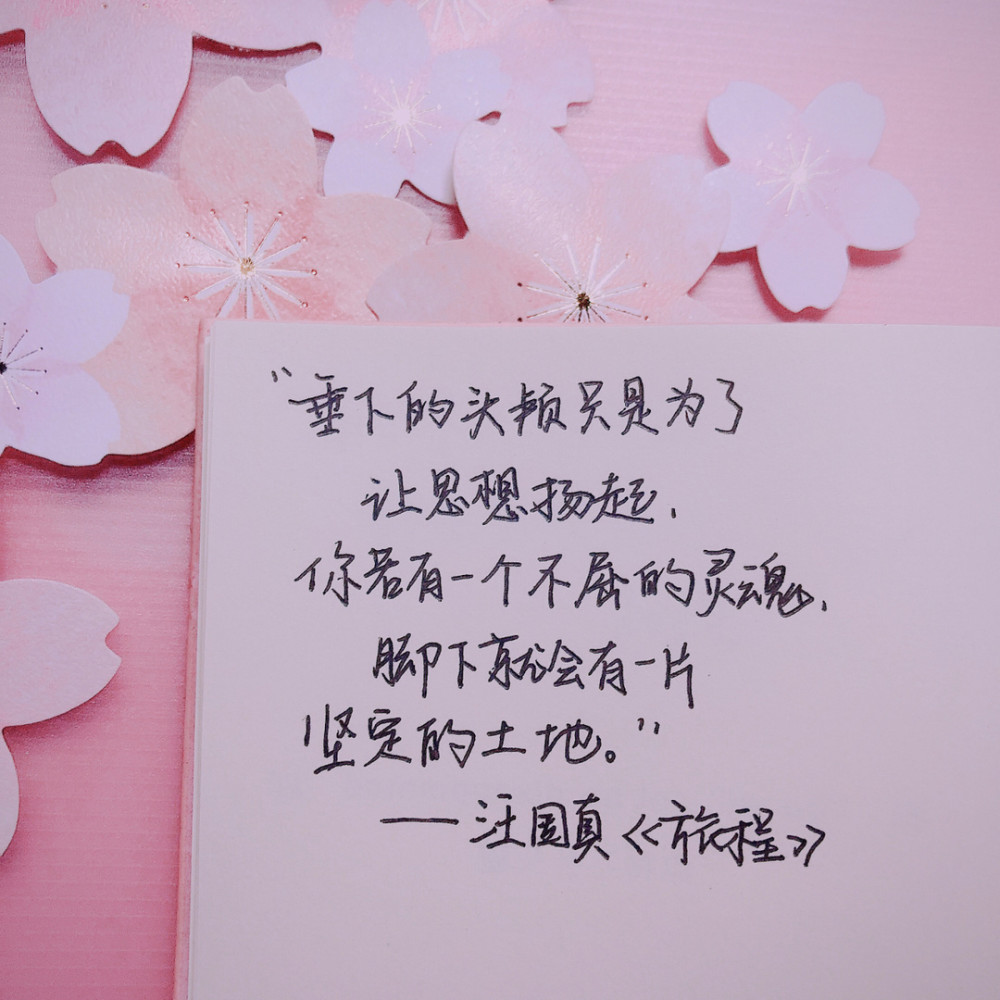 "垂下的头颅只是为了
让思想扬起,
你若有一个不屈的灵魂,
脚下就会有一片
坚定的土地。"
——汪国真《旅程》